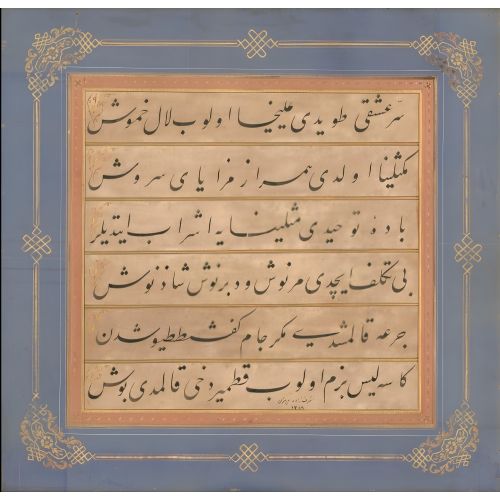 سرّ عشقی طویدی یملیخا اولوب لال خموش
مکثلینا اولدی همراز مزایای سروش
بادهٔ توحیدی مثلینایه اشراب ایتدیلر
بی تکلف ایچدی مرنوش و دبرنوش شاذنوش
جرعه قالمشدی مکر جام کفشططیوشدن
کاسه لیس بزم اولوب قطمیر دخی قالمدی بوش